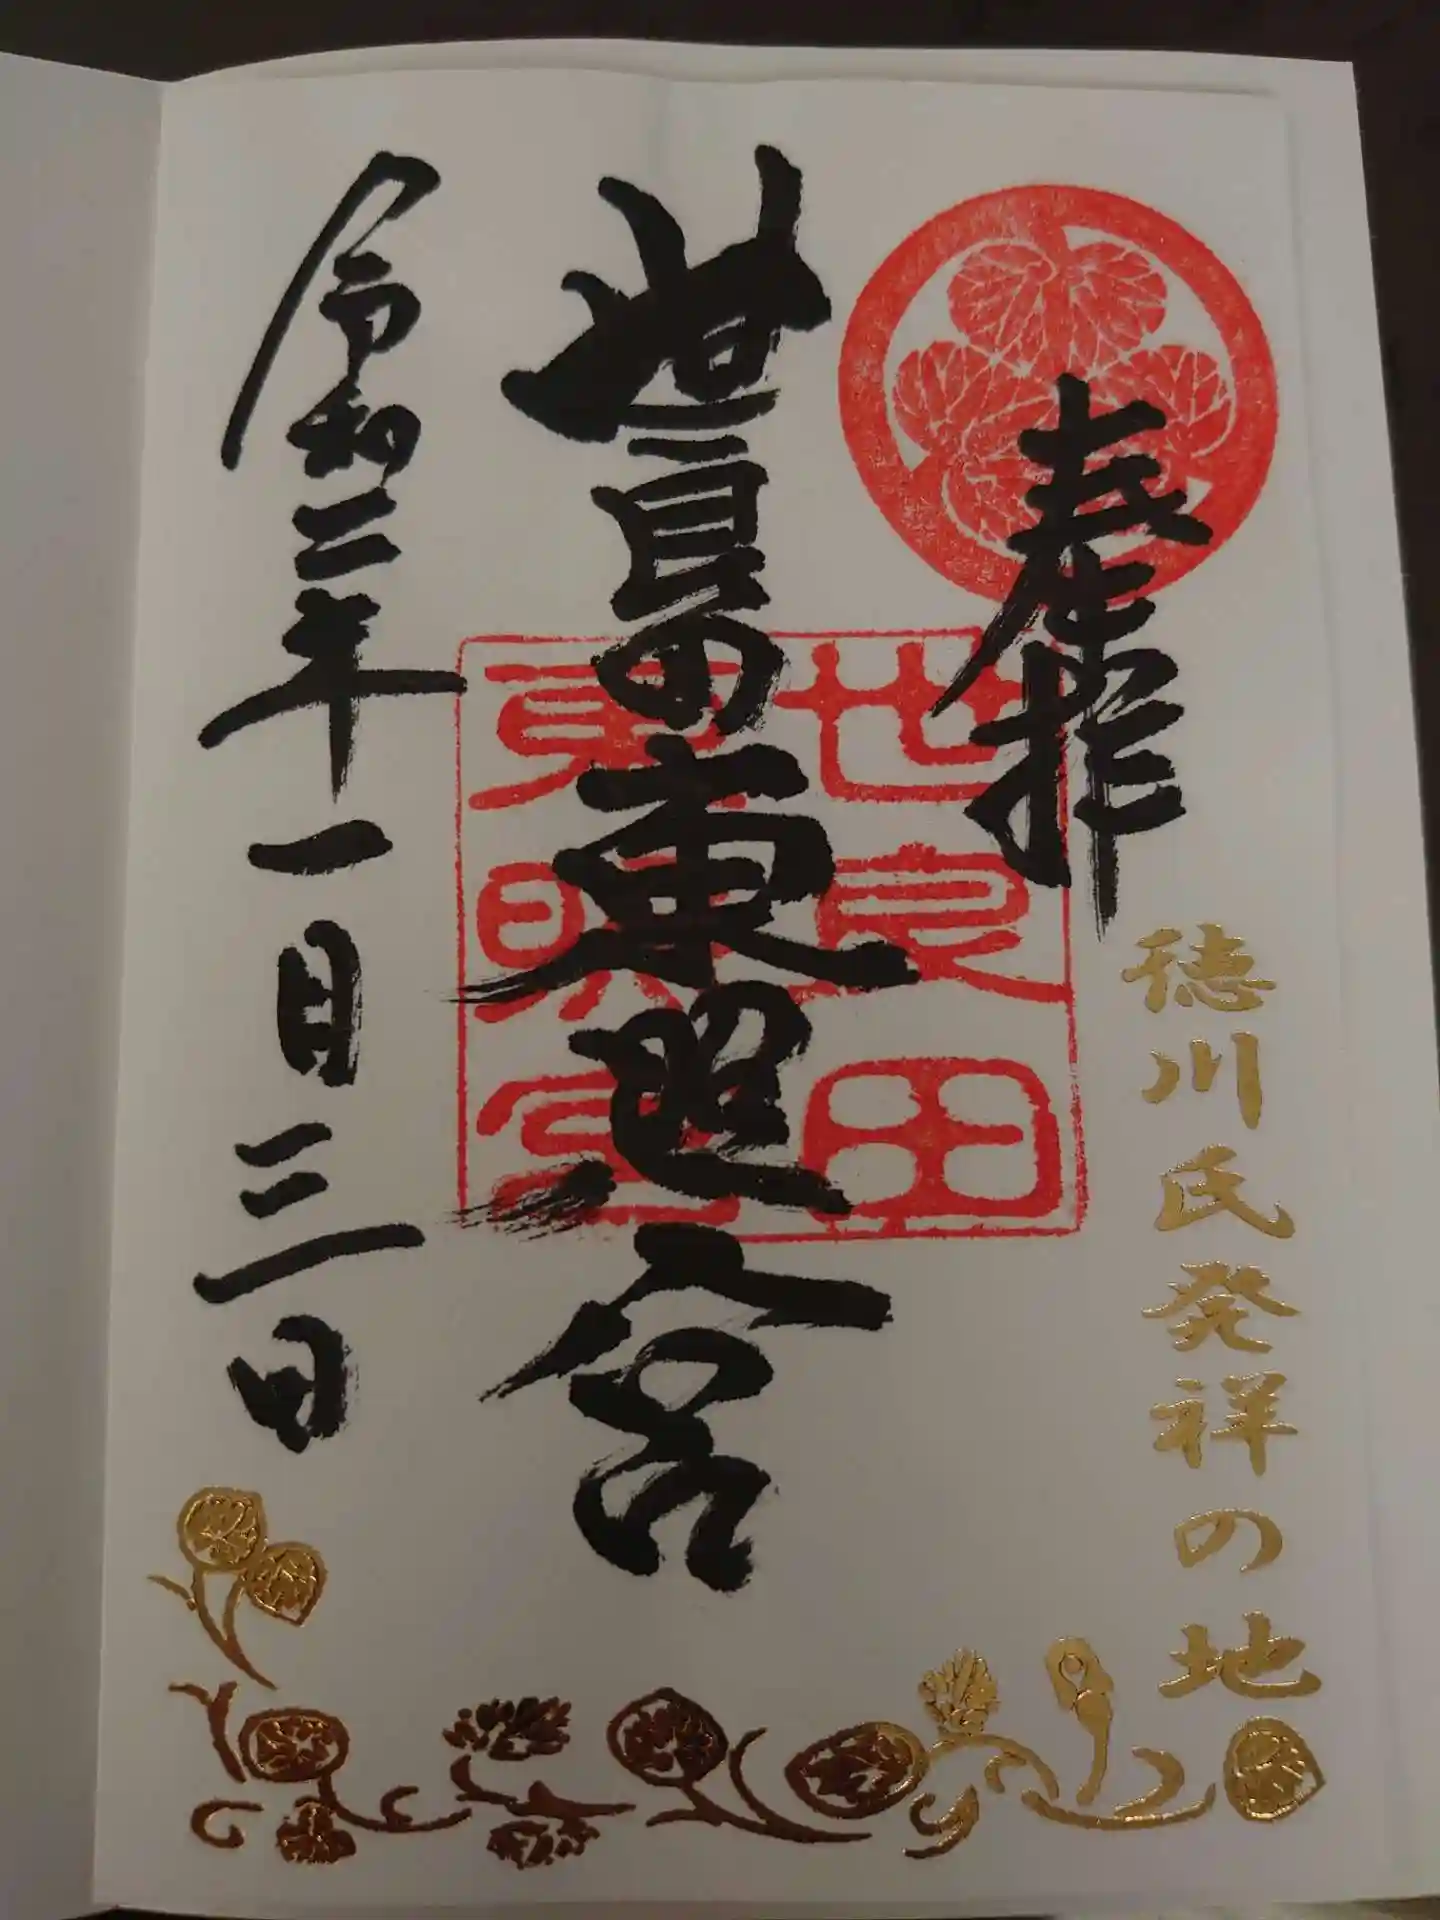 奉拝
徳川氏発祥の地
世良田東照宮
世良田
東照宮
令和二年一月三日